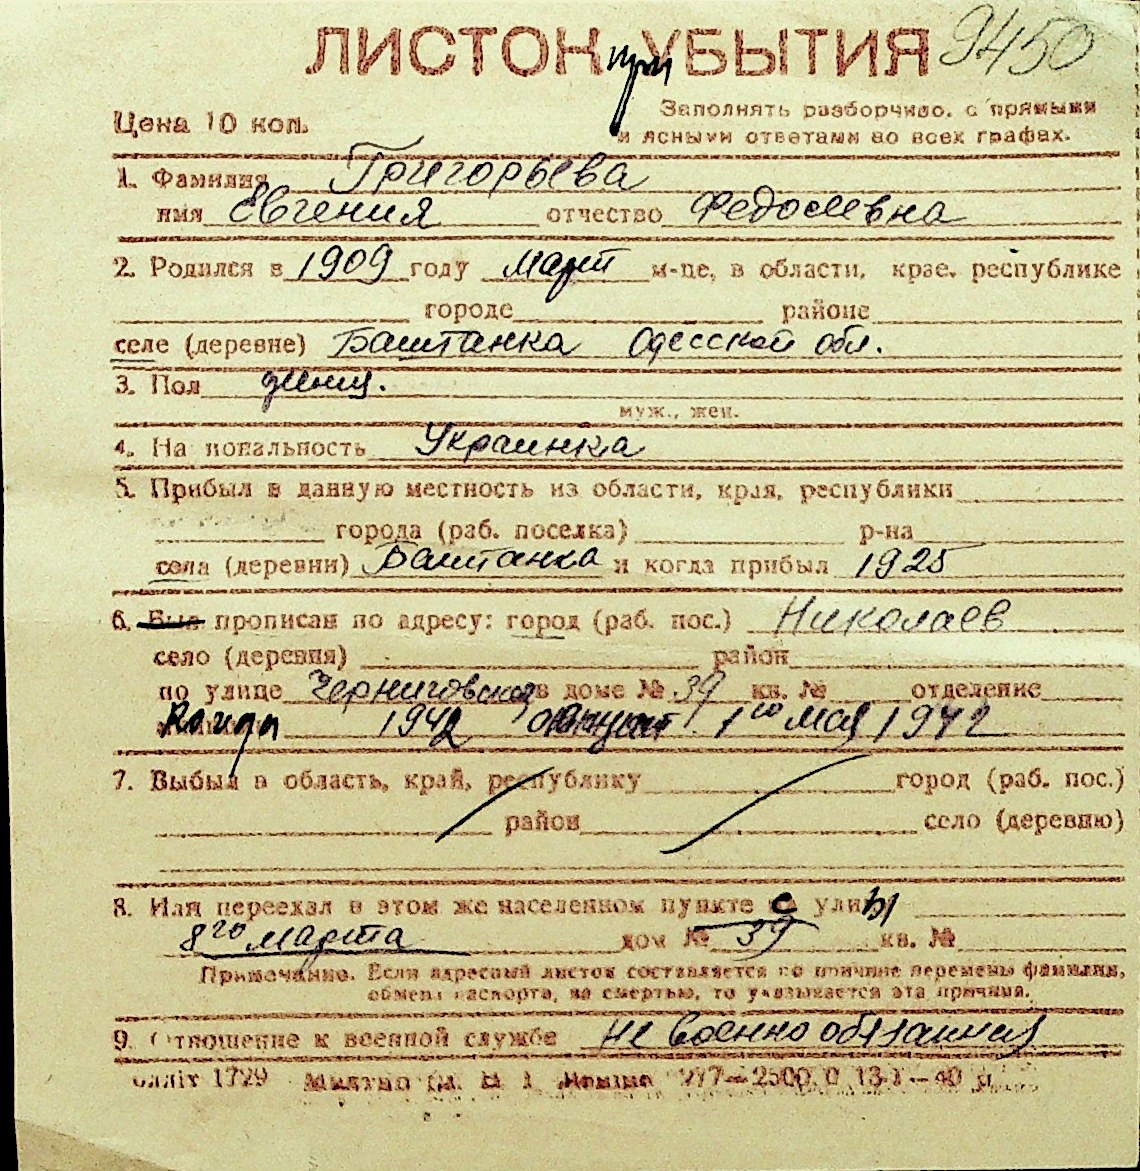 ЛИСТОК при УБЫТИЯ 9450
Цена 10 коп.
Заполнять разборчиво, с прямыми
и ясными ответами во всех графах.
1. Фамилия Григорьева
имя Евгения отчество Федосеевна
2. Родился в 1909 году Март м-це, в области, крае, республике
городе районе
селе (деревне) Баштанка Одесской обл.
3. Пол женщ.
муж., жен.
4. На иональность Украинка
5. Прибыл в данную местность из области, края, республики
города (раб. поселка) р-на
села (деревни) Баштанка и когда прибыл 1925
6. Был прописан по адресу: город (раб. пос.) Николаев
село (деревня) район
по улице Черниговская в доме № 39 кв. № отделение
1942 1го Мая 1942
7. Выбыл в область, край, республику город (раб. пос.)
район село (деревню)
8. Или переехал в этом же населенном пункте с улицы
8го марта дом № 39 кв. №
Примечание. Если адресный листок составляется по причине перемены фамилии,
обмена паспорта, за смертью, то указывается эта причина.
9. Отношение к военной службе Не военно обязанная
1729 2500 0 13-I-40